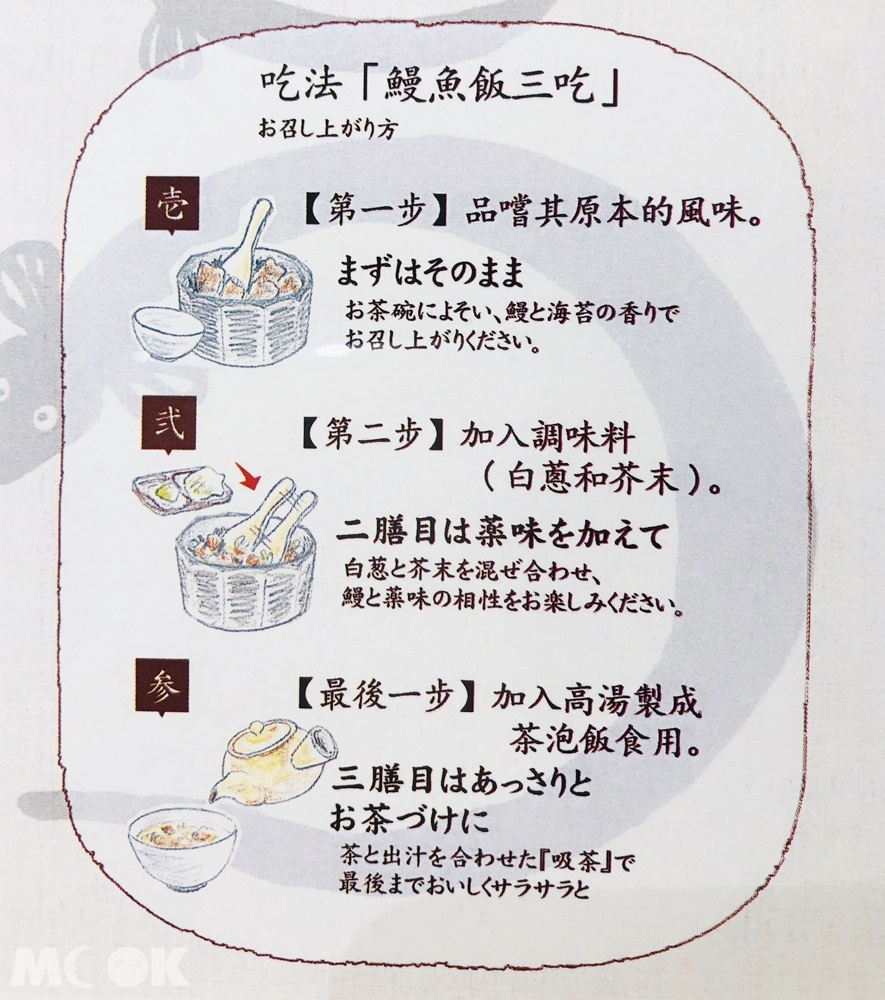 吃法「鰻魚飯三吃」
お召し上がり方
壱
【第一步】品嚐其原本的風味。
まずはそのまま
お茶碗によそい、鰻と海苔の香りで
お召し上がりください。
弐
【第二步】加入調味料
（白蔥和芥末）。
二膳目は薬味を加えて
白葱と芥末を混ぜ合わせ、
鰻と薬味の相性をお楽しみください。
参
【最後一步】加入高湯製成
茶泡飯食用。
三膳目はあっさりと
お茶づけに
茶と出汁を合わせた『吸茶』で
最後までおいしくサラサラと